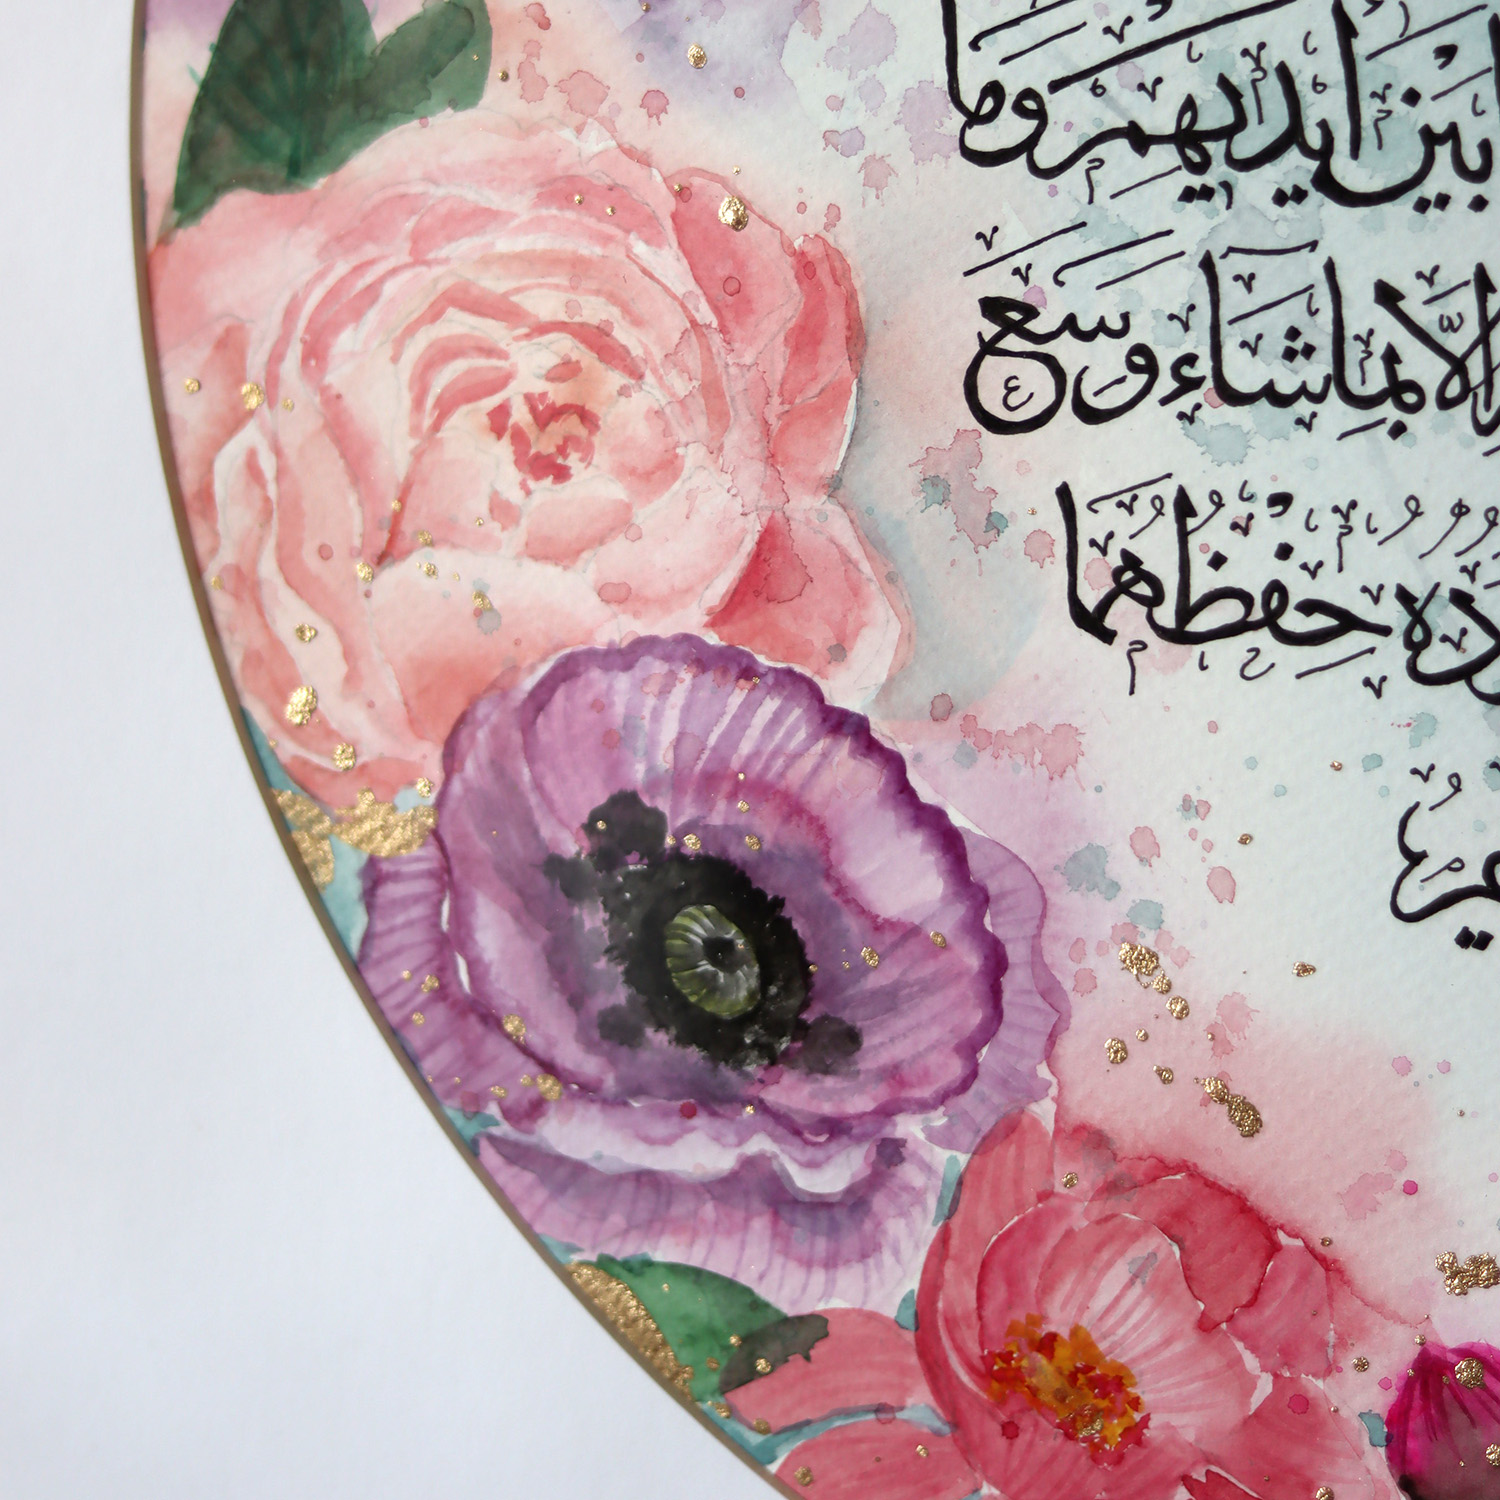 بَيْنَ أَيْدِيهِمْ وَمَا
إِلَّا بِمَا شَاءَ وَسِعَ
حِفْظُهُمَا